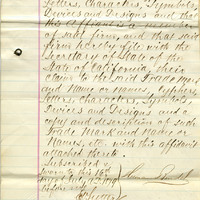 Letters, Characters, Symbols,
Devices and Designs and that
this Affiant is a member
of said firm, and that said
firm hereby file with the
Secretary of State of the
State of California, their
claim to the said Trade Mark
and Name or Names, Cyphers
Letters, Characters, Symbols,
Devices and Designs and a
copy and description of such
Trade Mark and Name or
Names, etc. with this affidavit
against thereto.
Subscribed &
Sworn to this 18th
day of
before me